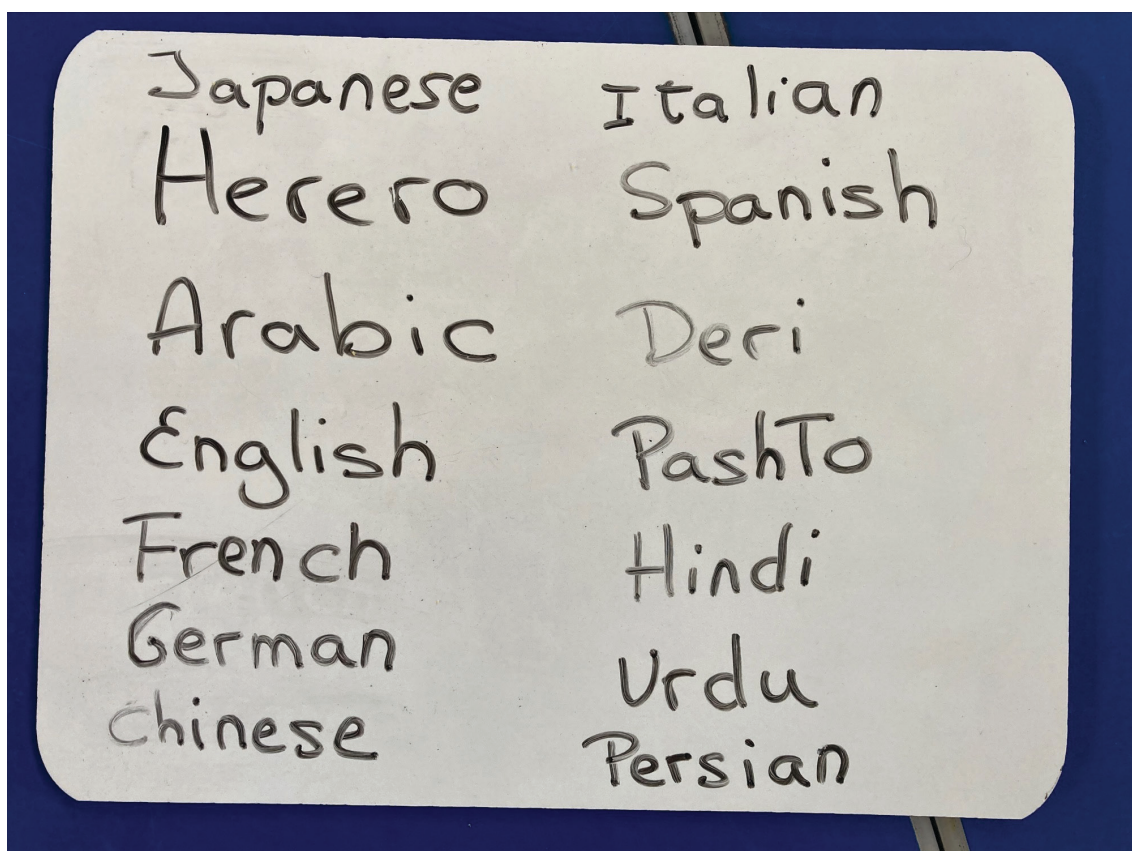 Japanese
Herero
Arabic
English
French
German
chinese
Italian
Spanish
Deri
PashTo
Hindi
Urdu
Persian